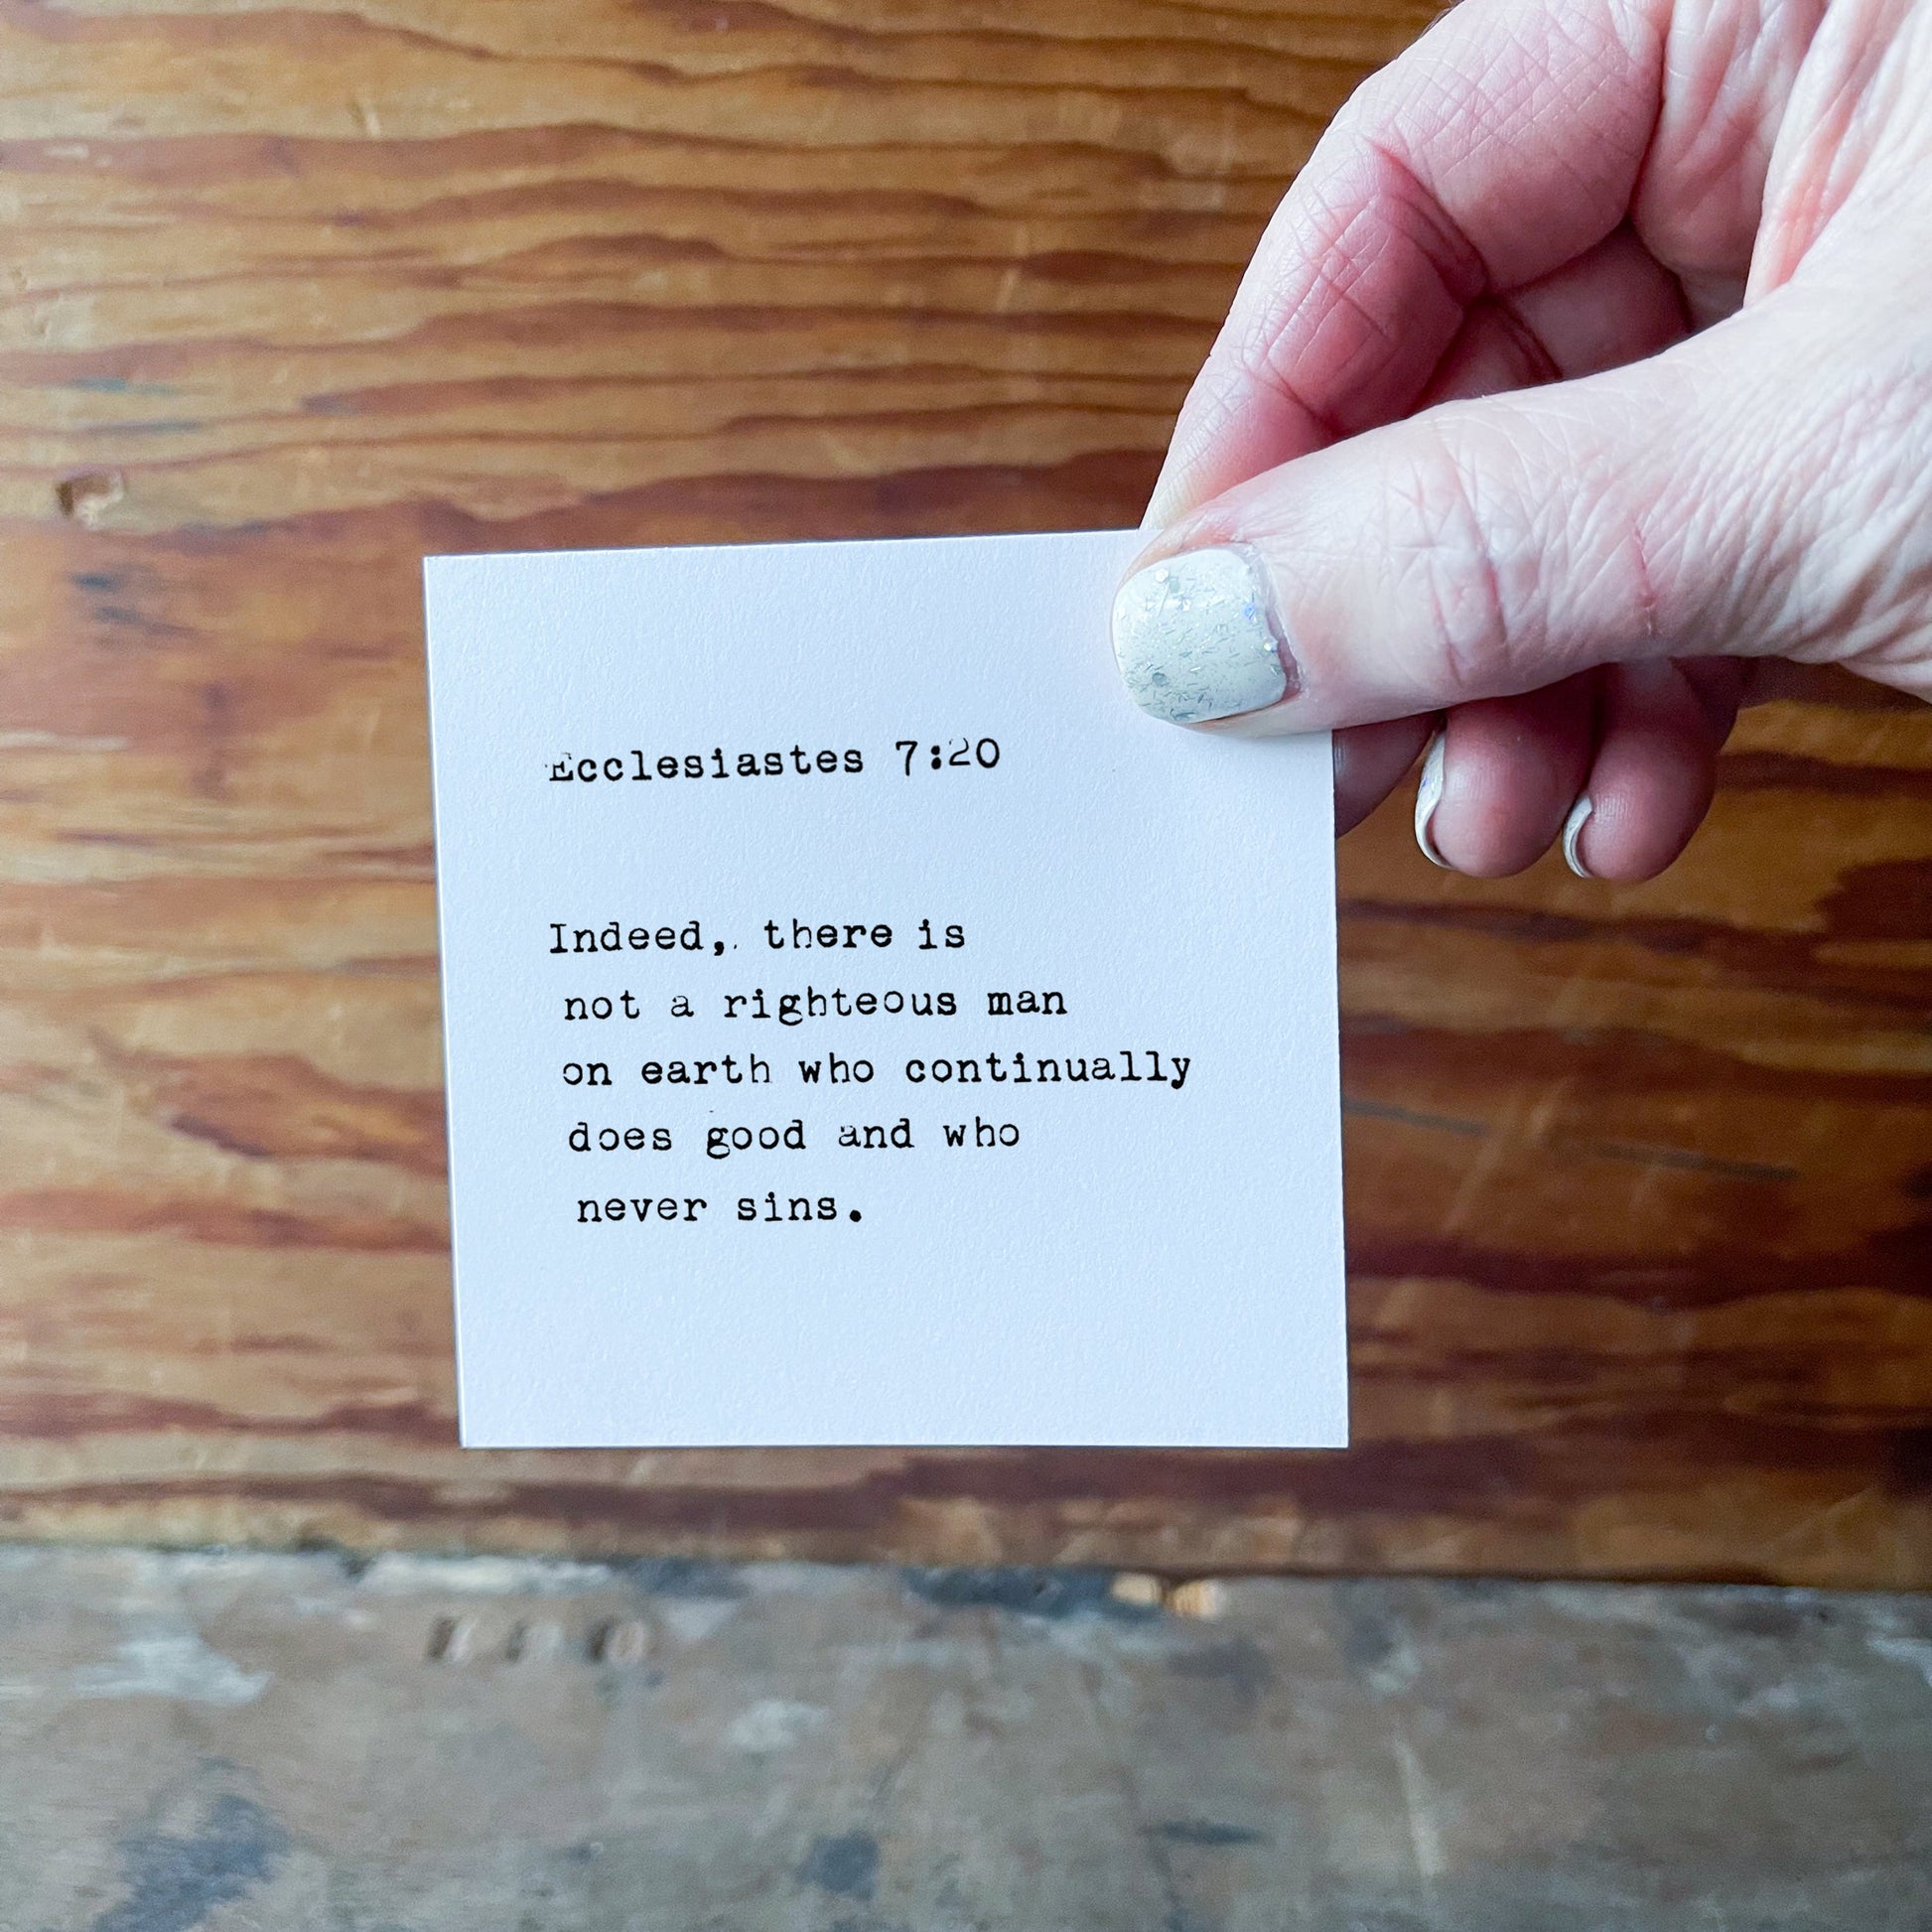 Ecclesiastes 7:20
Indeed, there is
not a righteous man
on earth who continually
does good and who
never sins.